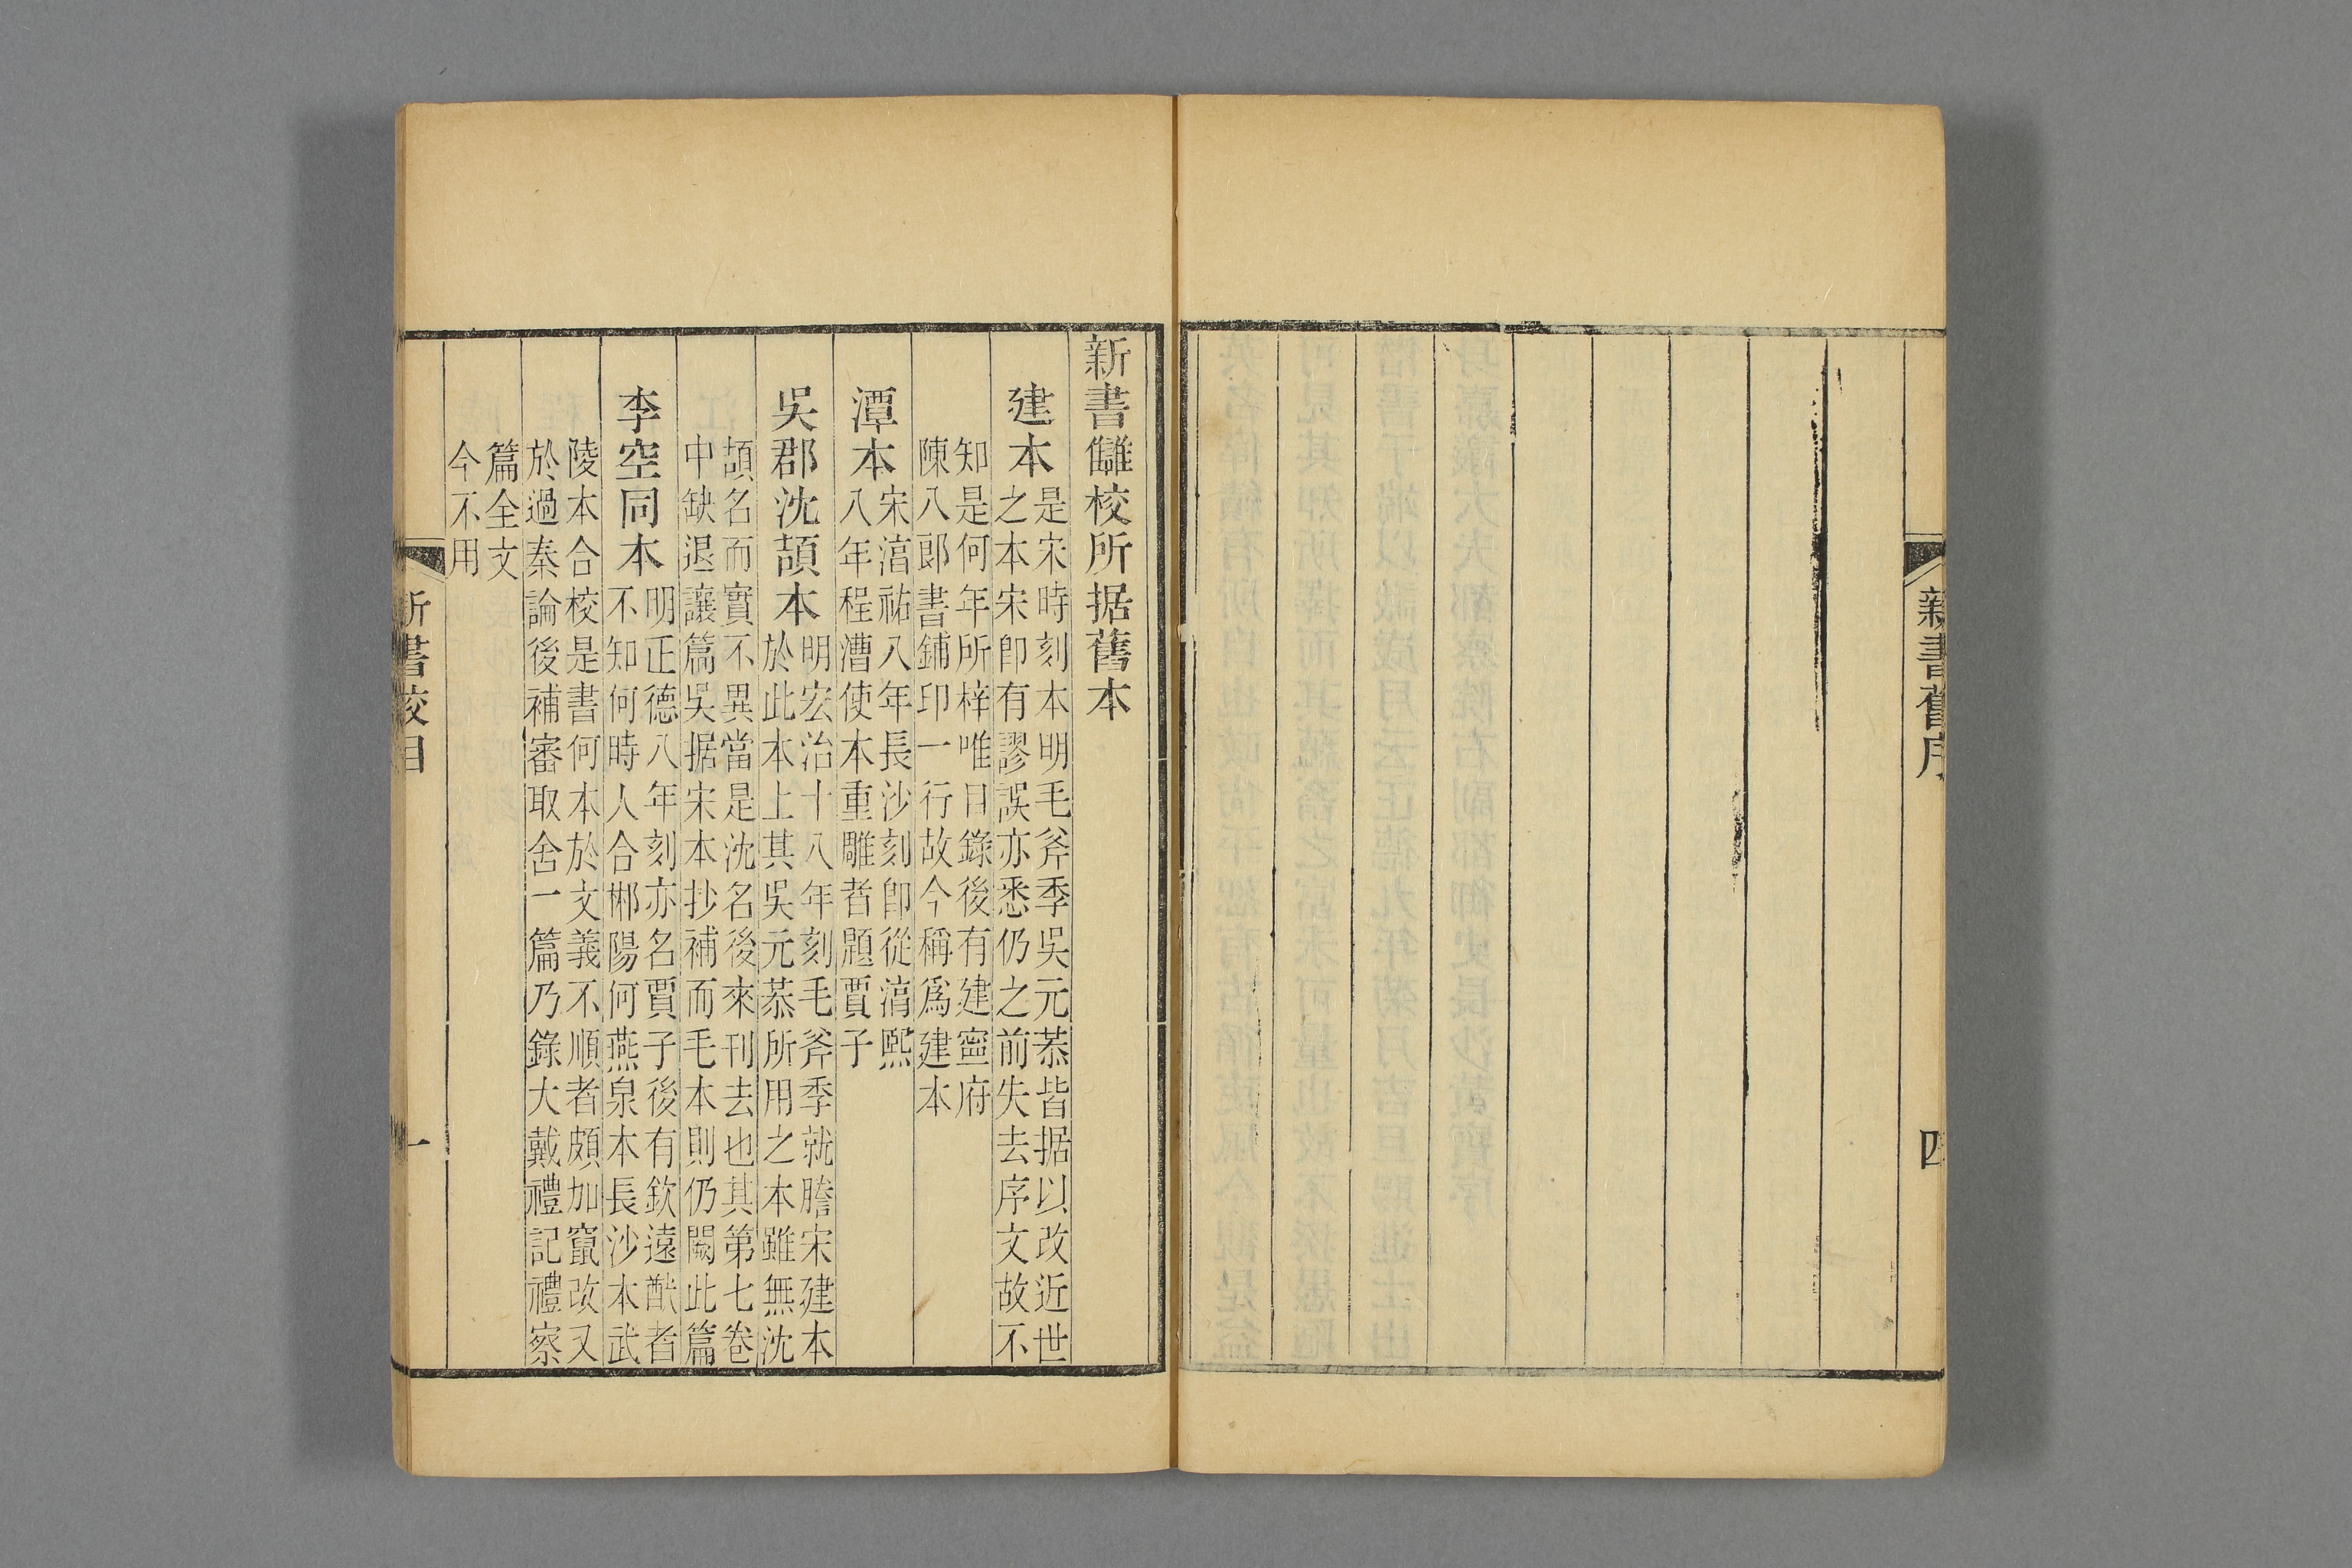 新書舊序
四
新書讎校所据舊本
建本
是宋時刻本明毛斧季吳元恭皆据以改近世
之本宋卽有謬誤亦悉仍之前失去序文故不
知是何年所梓唯目錄後有建寧府
陳八郎書鋪印一行故今稱爲建本
潭本
宋湻祐八年長沙刻卽從湻熙
八年程漕使本重雕者題賈子
吳郡沈頡本
明宏治十八年刻毛斧季就謄宋建本
於此本上其吳元恭所用之本雖無沈
頡名而實不異當是沈名後來刊去也其第七卷
中缺退讓篇吳据宋本抄補而毛本則仍闕此篇
李空同本
明正德八年刻亦名賈子後有欽遠猷者
不知何時人合郴陽何燕泉本長沙本武
陵本合校是書何本於文義不順者頗加竄改又
於過秦論後補審取舍一篇乃錄大戴禮記禮察
篇全文
今不用
新書校目
一